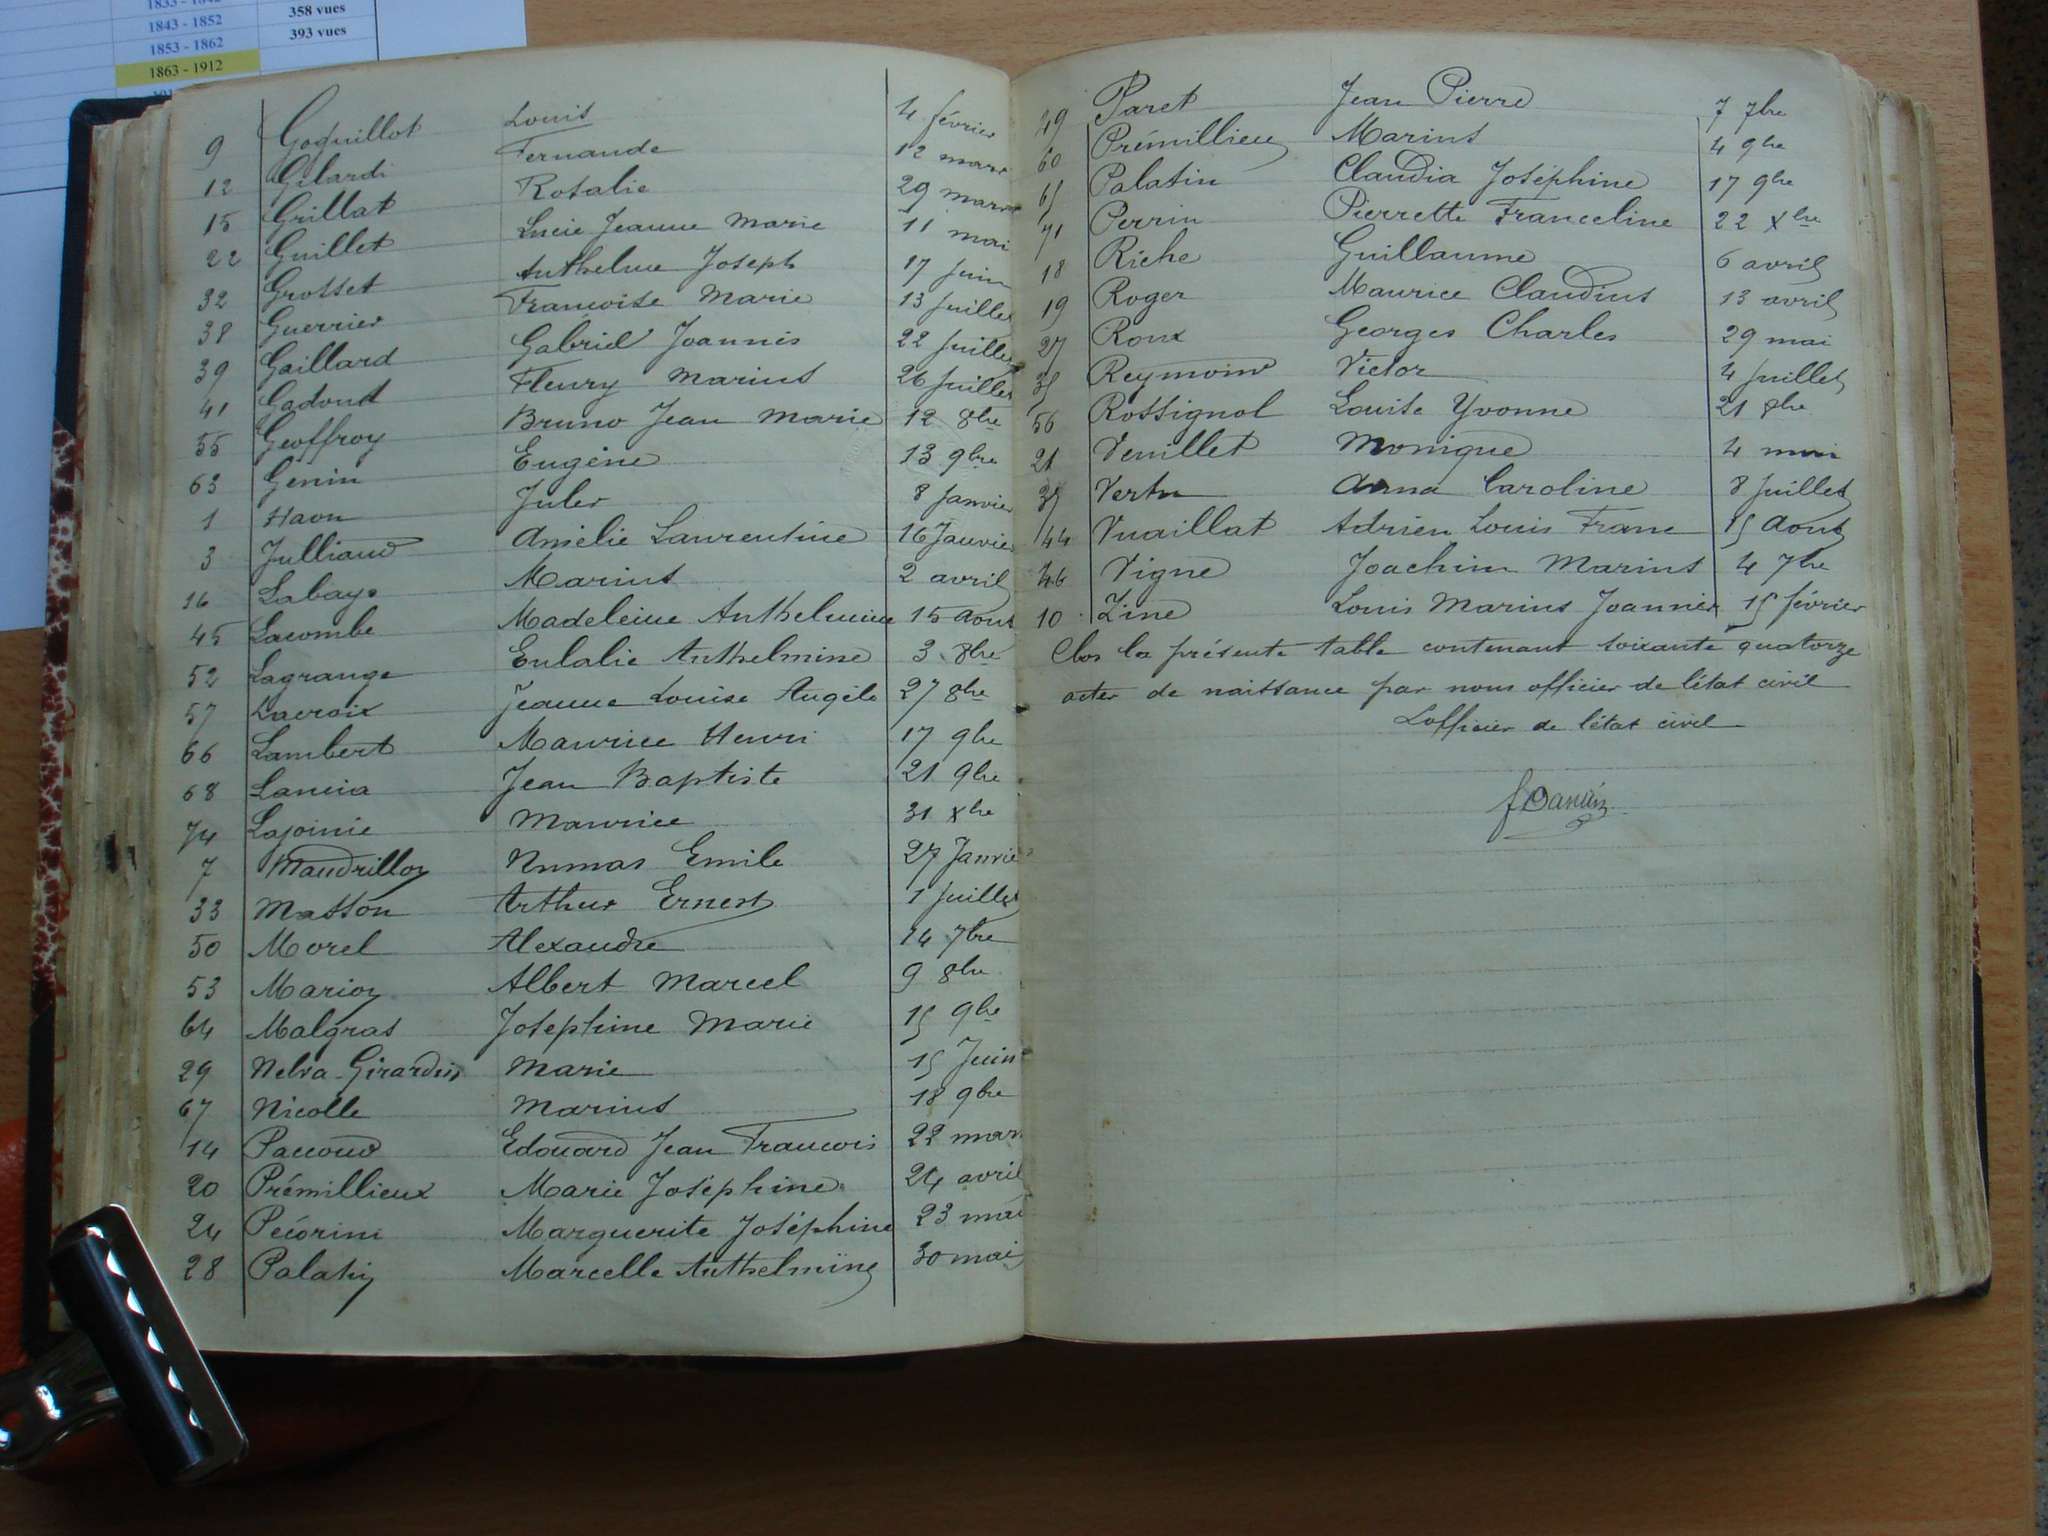 1843 - 1852 358 vues
1853 - 1862 393 vues
1863 - 1912
9 Goguillot Louis 4 février
12 Gilardi Fernande 12 mars
15 Grillat Rosalie 29 mars
22 Guillet Lucie Jeanne Marie 11 mai
32 Grosset Anthelme Joseph 17 juin
38 Guerrier Françoise Marie 13 juillet
39 Gaillard Gabriel Joannès 22 juillet
41 Gadoud Fleury Marius 26 juillet
55 Geoffroy Bruno Jean Marie 12 8bre
63 Genin Eugène 13 9bre
1 Haon Jules 8 janvier
3 Julliand Amélie Laurentine 16 Janvier
16 Labaye Marius 2 avril
45 Lacombe Madeleine Anthelmine 15 Aout
52 Lagrange Eulalie Anthelmine 3 8bre
57 Lacroix Jeanne Louise Angèle 27 8bre
66 Lambert Maurice Henri 17 9bre
68 Lancia Jean Baptiste 21 9bre
74 Lajoinie Maurice 31 Xbre
7 Maudrillon Numas Emile 27 Janvier
33 Masson Arthur Ernest 1 juillet
50 Morel Alexandre 14 7bre
53 Marion Albert Marcel 9 8bre
64 Malgras Josephine Marie 15 9bre
29 Nelva-Girardin Marie 15 Juin
67 Nicolle Marius 18 9bre
14 Paccoud Edouard Jean Francois 22 mars
20 Prémillieux Marie Joséphine 24 avril
24 Pécorini Marguerite Joséphine 23 mai
28 Palatin Marcelle Anthelmine 30 mai
49 Paret Jean Pierre 7 7bre
60 Prémillieu Marius 4 9bre
65 Palatin Claudia Joséphine 17 9bre
71 Perrin Pierrette Franceline 22 Xbre
18 Riche Guillaume 6 avril
19 Roger Maurice Claudius 13 avril
27 Roux Georges Charles 29 mai
35 Reymoin Victor 4 juillet
56 Rossignol Louise Yvonne 21 8bre
21 Veuillet Monique 4 mai
37 Vertu Anna Caroline 8 juillet
44 Vuaillat Adrien Louis Franc 15 Aout
46 Vigne Joachim Marius 4 7bre
10 Zine Louis Marius Joannès 15 février
Clos la présente table contenant soixante quatorze
actes de naissance par nous officier de l'état civil
L'officier de l'état civil